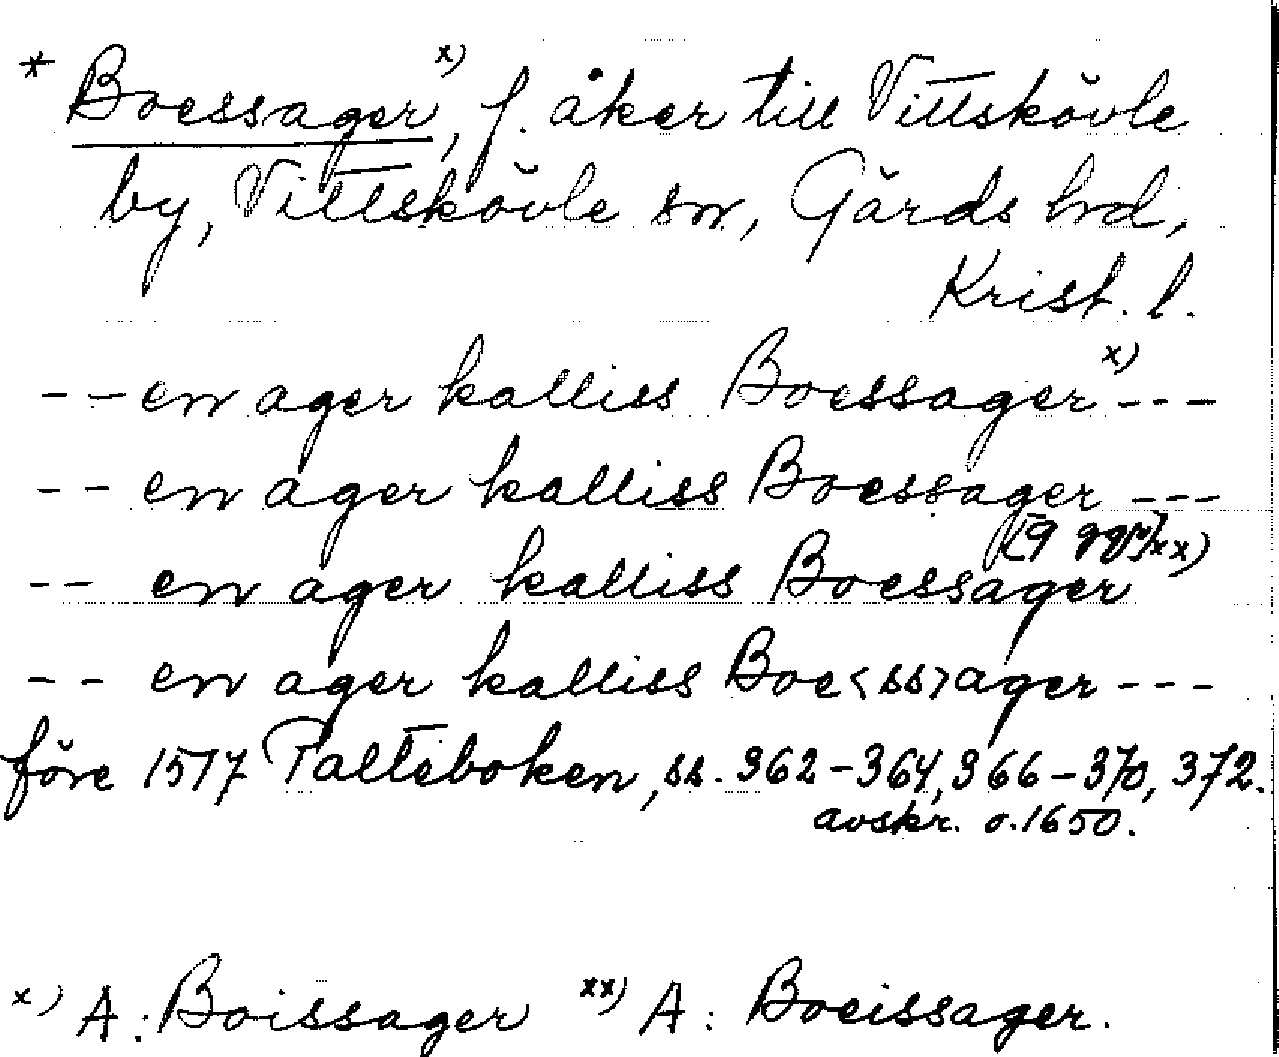 * Boessager x), f. åker till Vittskövle
by, Vittskövle sn, Gärds hd,
Krist. l.
-- en ager kalliss Boessager x) ---
-- en ager kalliss Boessager ---
[9 ggr] xx)
-- en ager kalliss Boessager
-- en ager kalliss Boe<ss>ager ---
före 1517 Palteboken, ss. 362-364, 366-370, 372.
avskr. o. 1650.
x) A: Boissager xx) A: Boeissager.